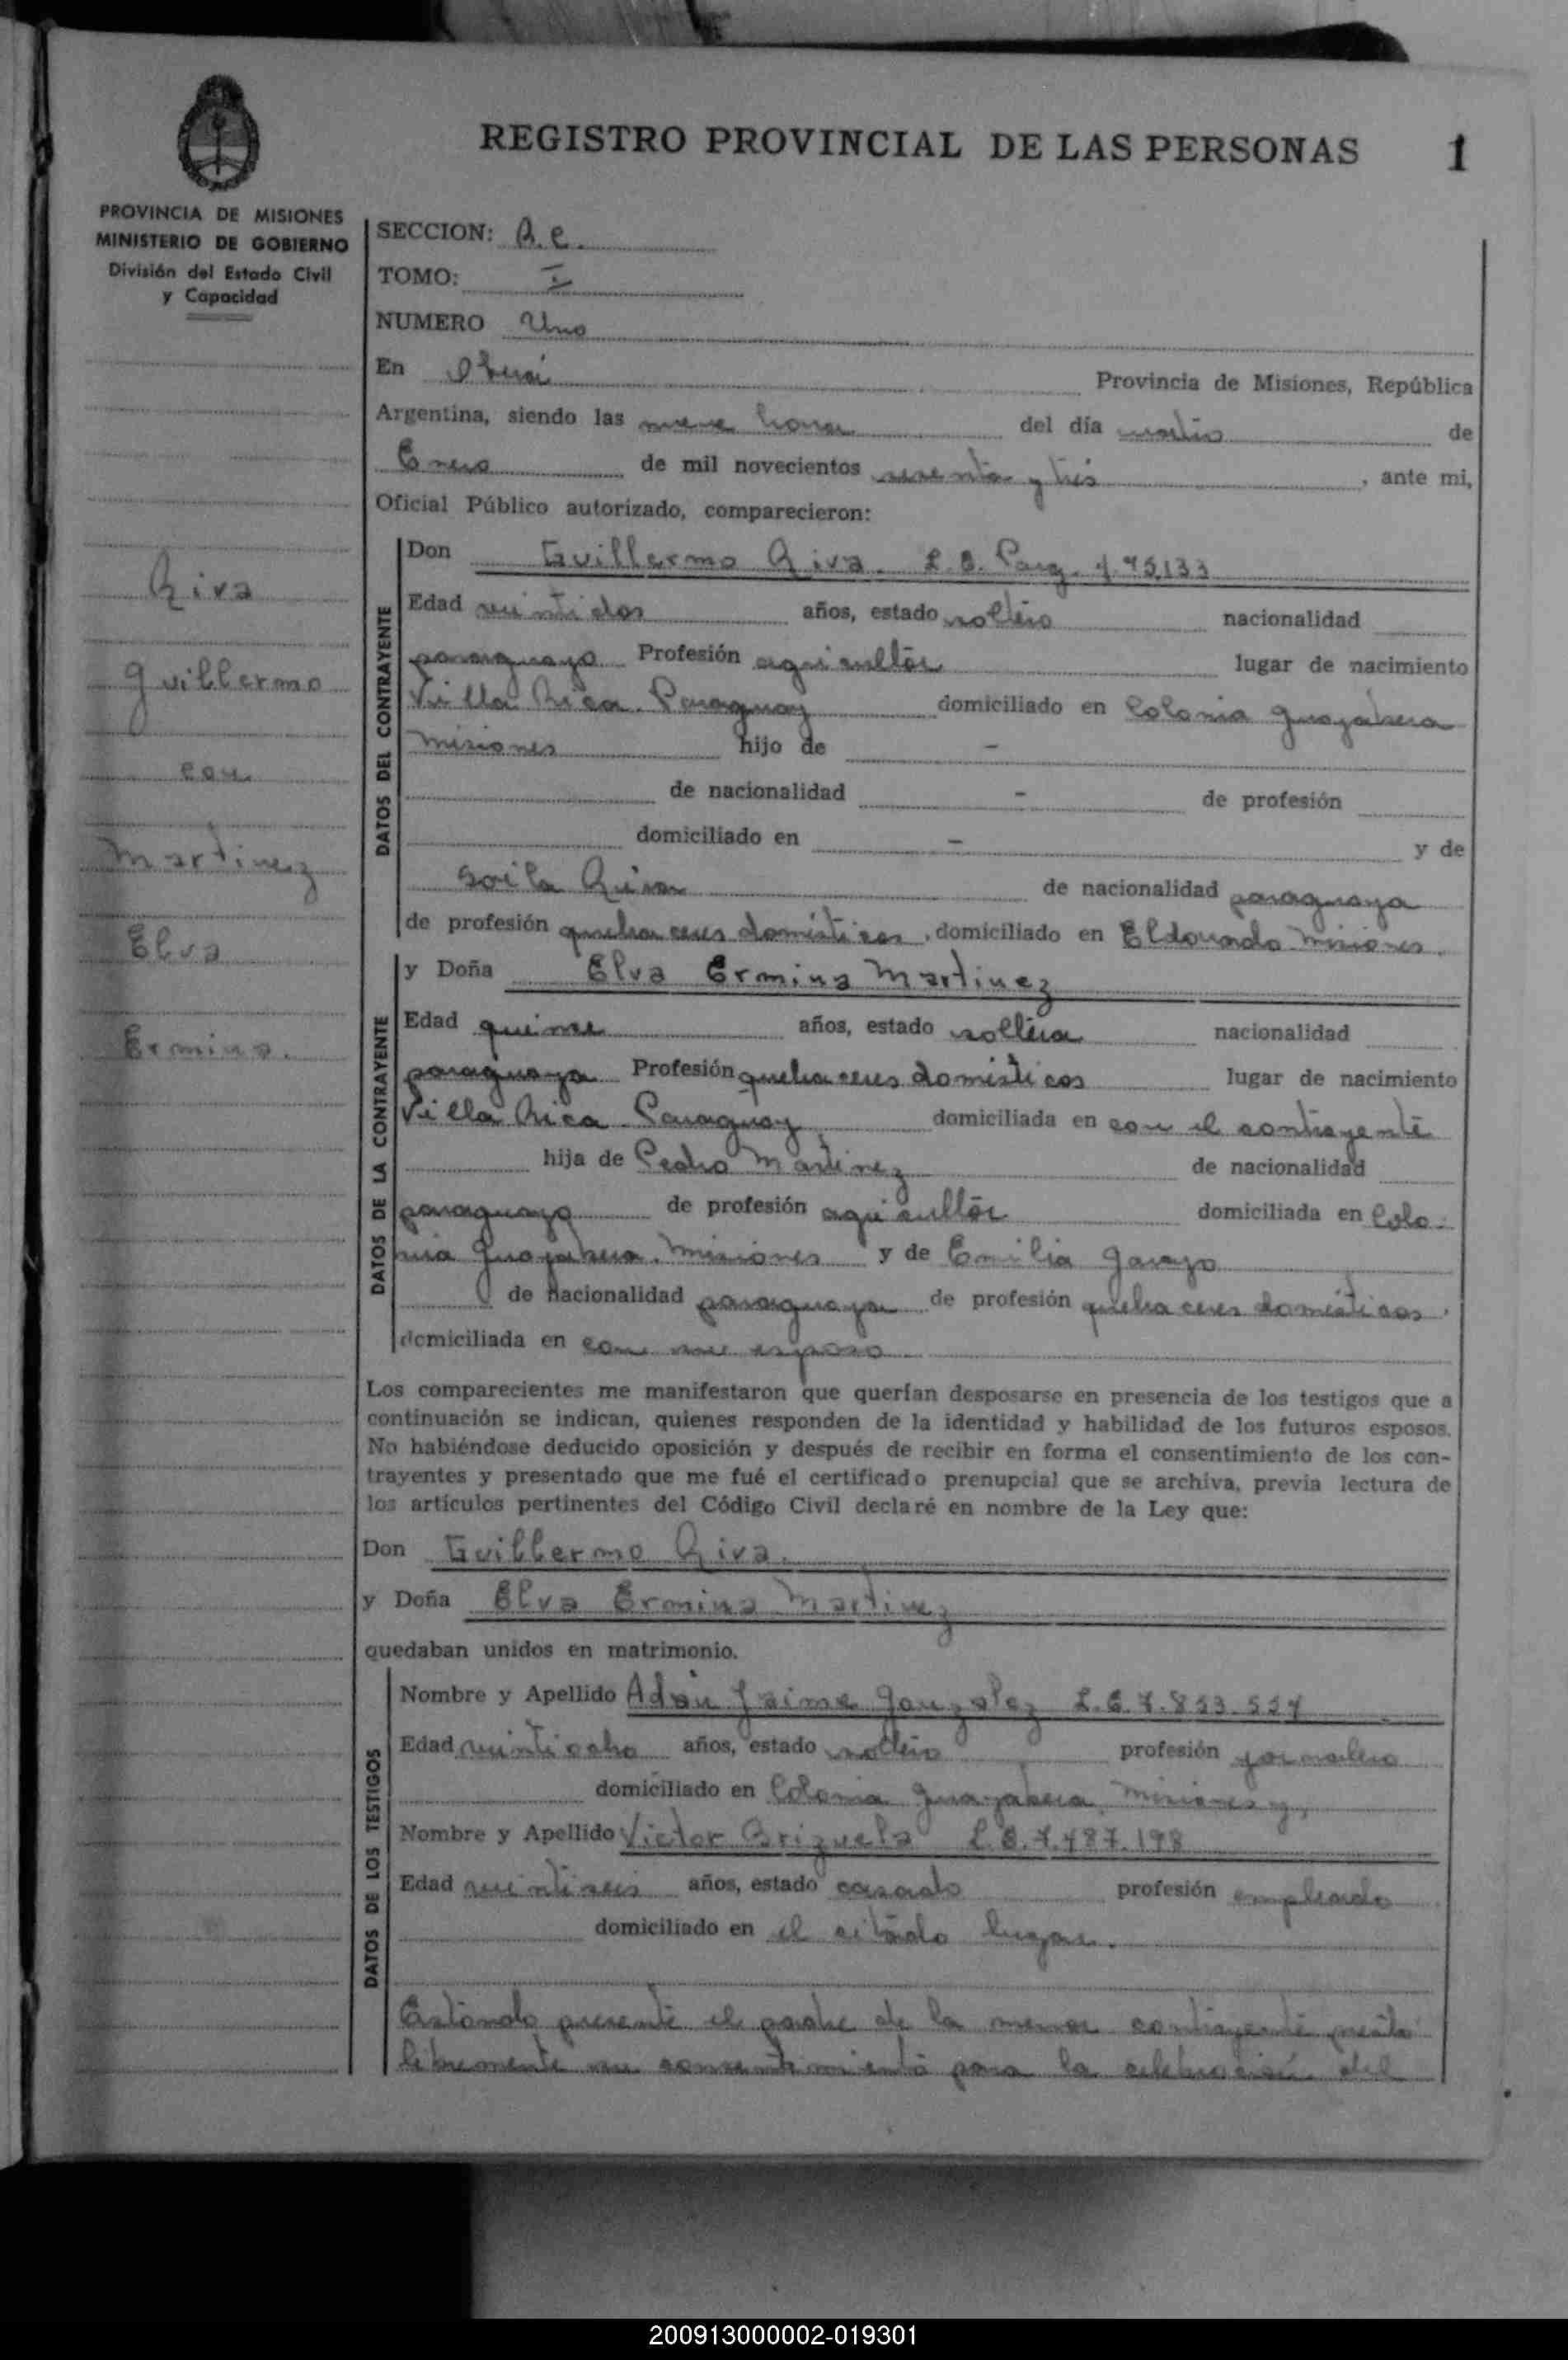 REGISTRO PROVINCIAL DE LAS PERSONAS 1
PROVINCIA DE MISIONES
MINISTERIO DE GOBIERNO
División del Estado Civil
y Capacidad
Riva
Guillermo
con
Martinez
Elva
Ermina.
SECCION:
TOMO: I
NUMERO Uno
En Oberá Provincia de Misiones, República
Argentina, siendo las nueve horas del día de
Enero de mil novecientos sesenta y tres, ante mi,
Oficial Público autorizado, comparecieron:
DATOS DEL CONTRAYENTE
Don Guillermo Riva. Parg.
Edad veintidos años, estado soltero nacionalidad
paraguayo Profesión agricultor lugar de nacimiento
Villa Rica. Paraguay domiciliado en Colonia Guayabera
Misiones hijo de -
de nacionalidad - de profesión
domiciliado en - y de
Soila Riva de nacionalidad paraguaya
de profesión quehaceres domésticos, domiciliado en Eldorado Misiones.
DATOS DE LA CONTRAYENTE
y Doña Elva Ermina Martinez
Edad quince años, estado soltera nacionalidad
paraguaya Profesión quehaceres domésticos lugar de nacimiento
Villa Rica. Paraguay domiciliada en con el contrayente
hija de Pedro Martinez de nacionalidad
paraguayo de profesión agricultor domiciliada en Colo-
nia Guayabera. Misiones y de Emilia Garayo
de nacionalidad paraguaya de profesión quehaceres domésticos.
domiciliada en con su esposo
Los comparecientes me manifestaron que querían desposarse en presencia de los testigos que a
continuación se indican, quienes responden de la identidad y habilidad de los futuros esposos.
No habiéndose deducido oposición y después de recibir en forma el consentimiento de los con-
trayentes y presentado que me fué el certificado prenupcial que se archiva, previa lectura de
los artículos pertinentes del Código Civil declaré en nombre de la Ley que:
Don Guillermo Riva.
y Doña Elva Ermina Martinez
quedaban unidos en matrimonio.
DATOS DE LOS TESTIGOS
Nombre y Apellido Adán Jaime Gonzalez L.E.
Edad veintiocho años, estado soltero profesión jornalero
domiciliado en Colonia Guayabera, Misiones y,
Nombre y Apellido Victor Brizuela L.E. 7.487.198
Edad veintiseis años, estado casado profesión empleado
domiciliado en el citado lugar.
Estando presente el padre de la menor contrayente presta
libremente su consentimiento para la celebración del
200913000002-019301